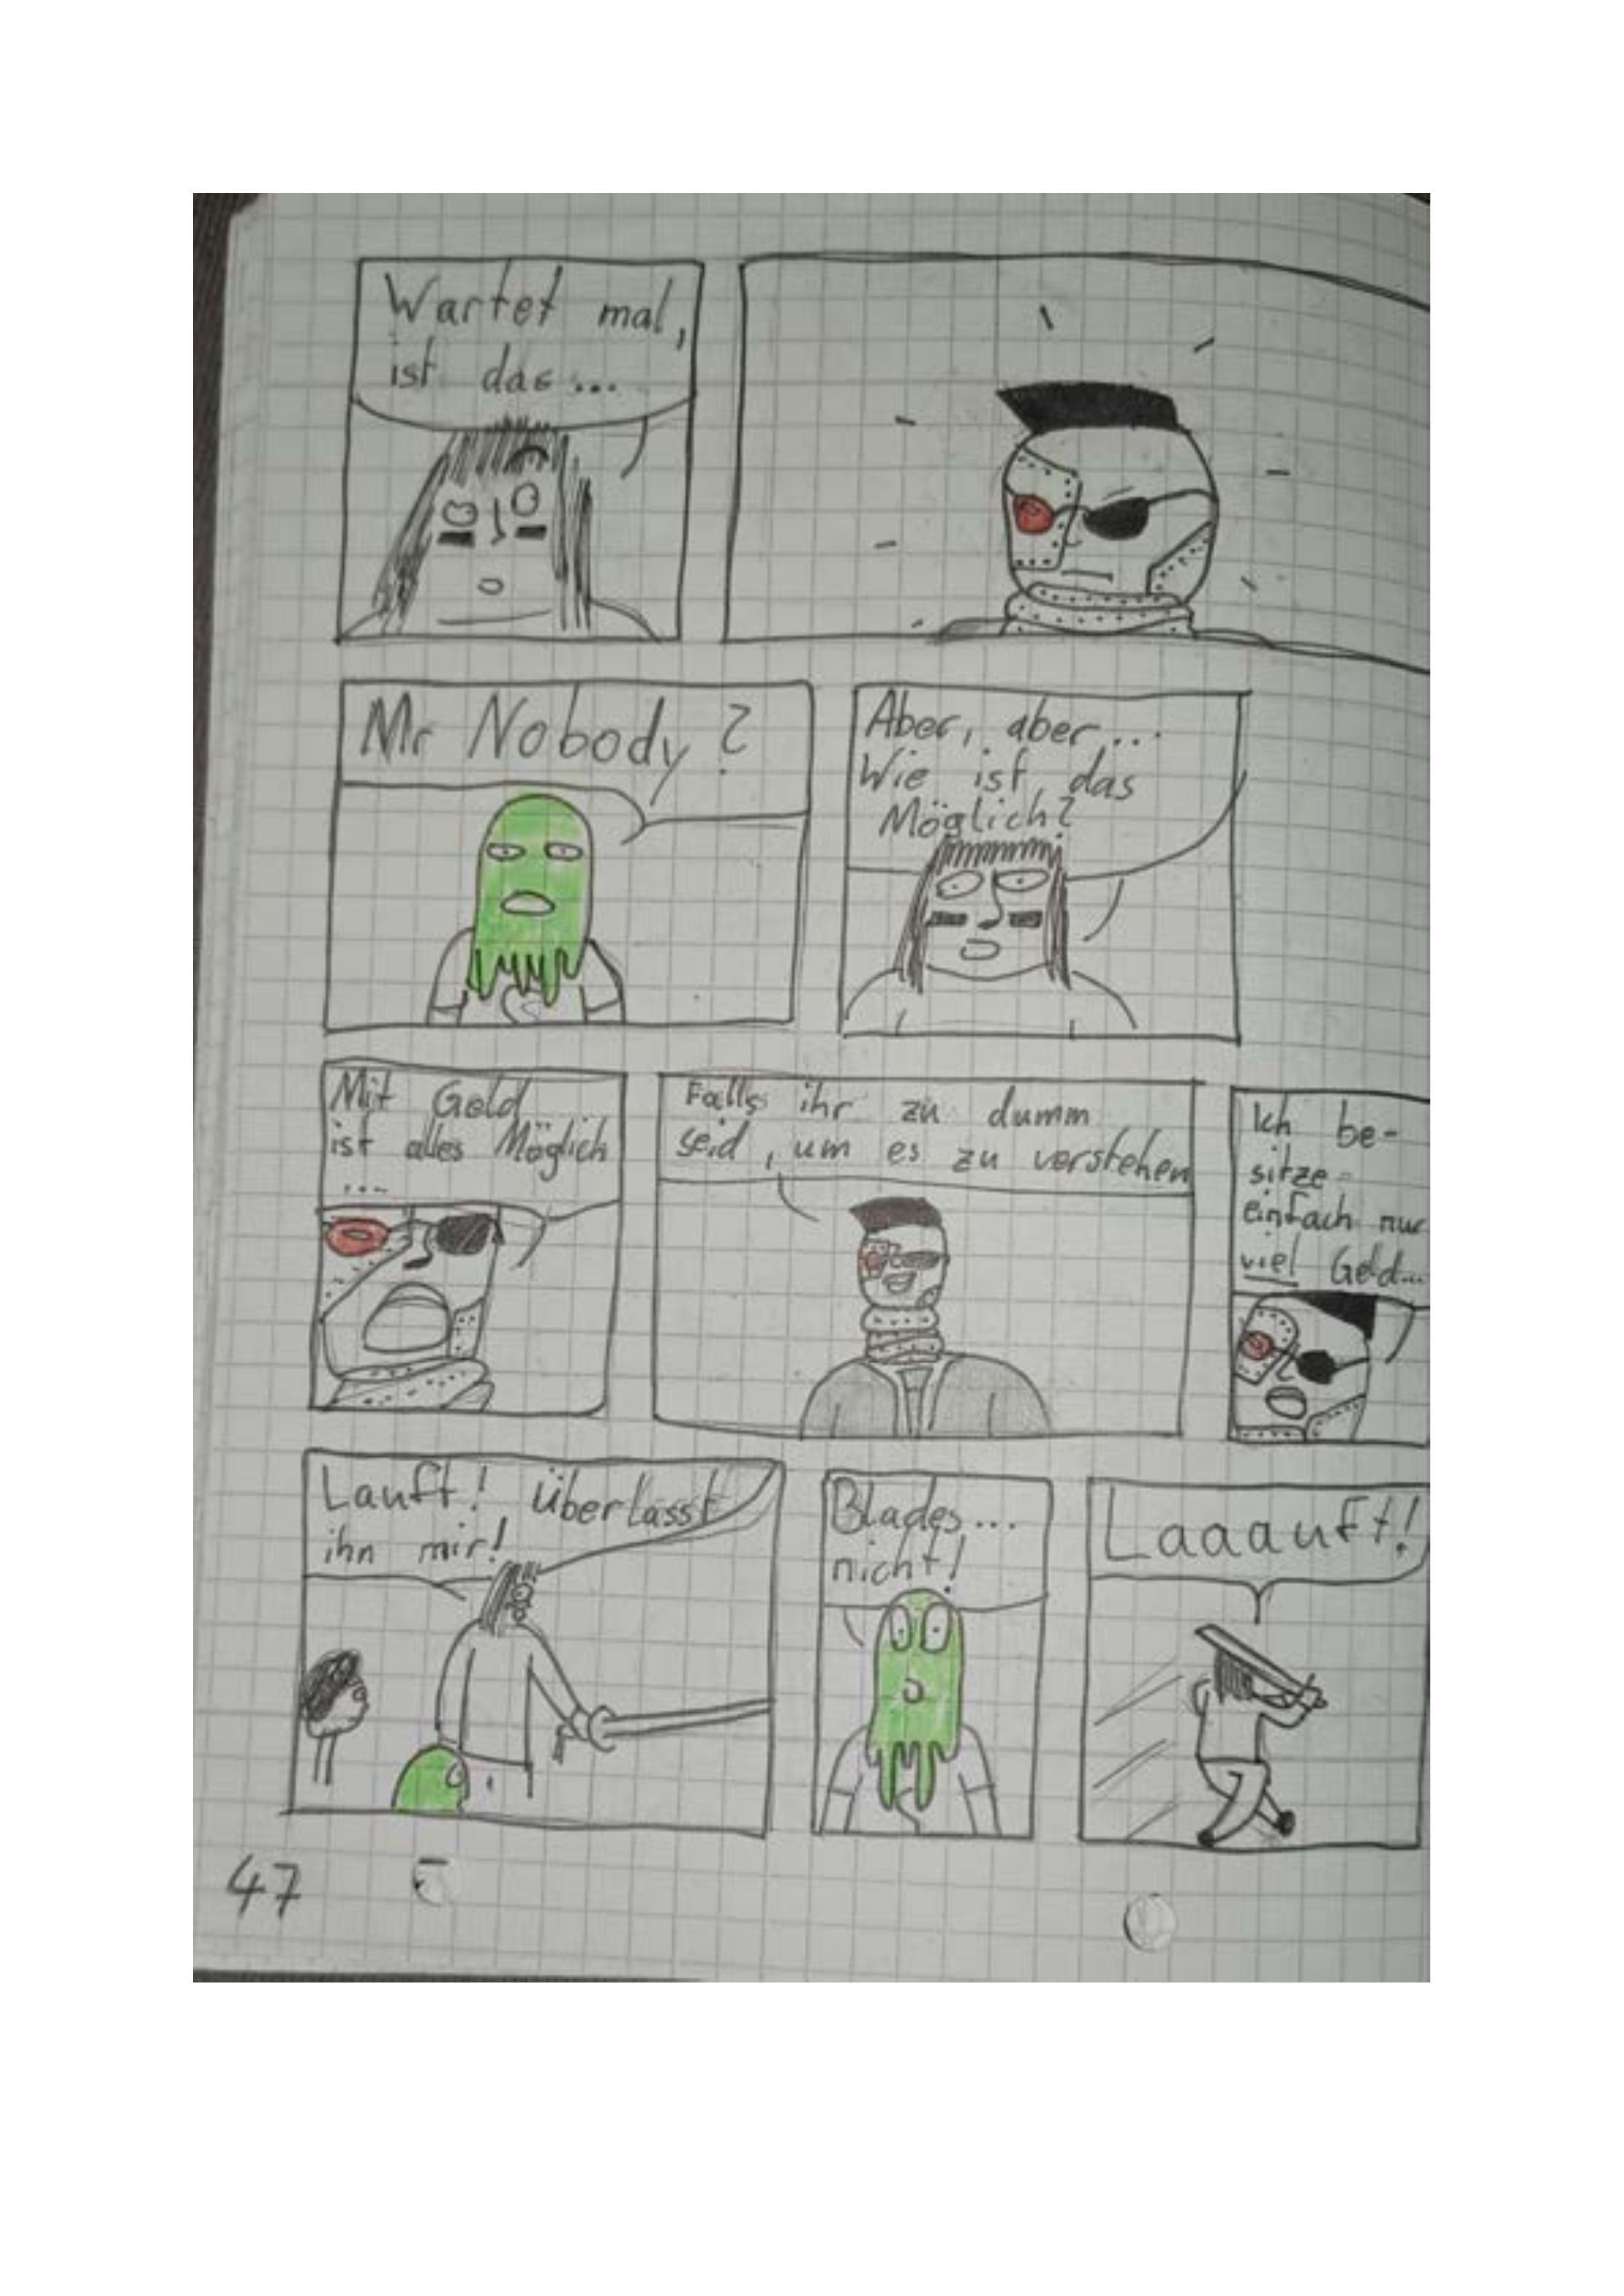 Wartet mal,
ist das...
Mr Nobody?
Aber, aber...
Wie ist das
Möglich?
Mit Geld
ist alles Möglich
...
Falls ihr zu dumm
seid, um es zu verstehen
Ich be-
sitze
einfach nur
viel Geld...
Lauft! überlasst
ihn mir!
Blades...
nicht!
Laaauft!
47